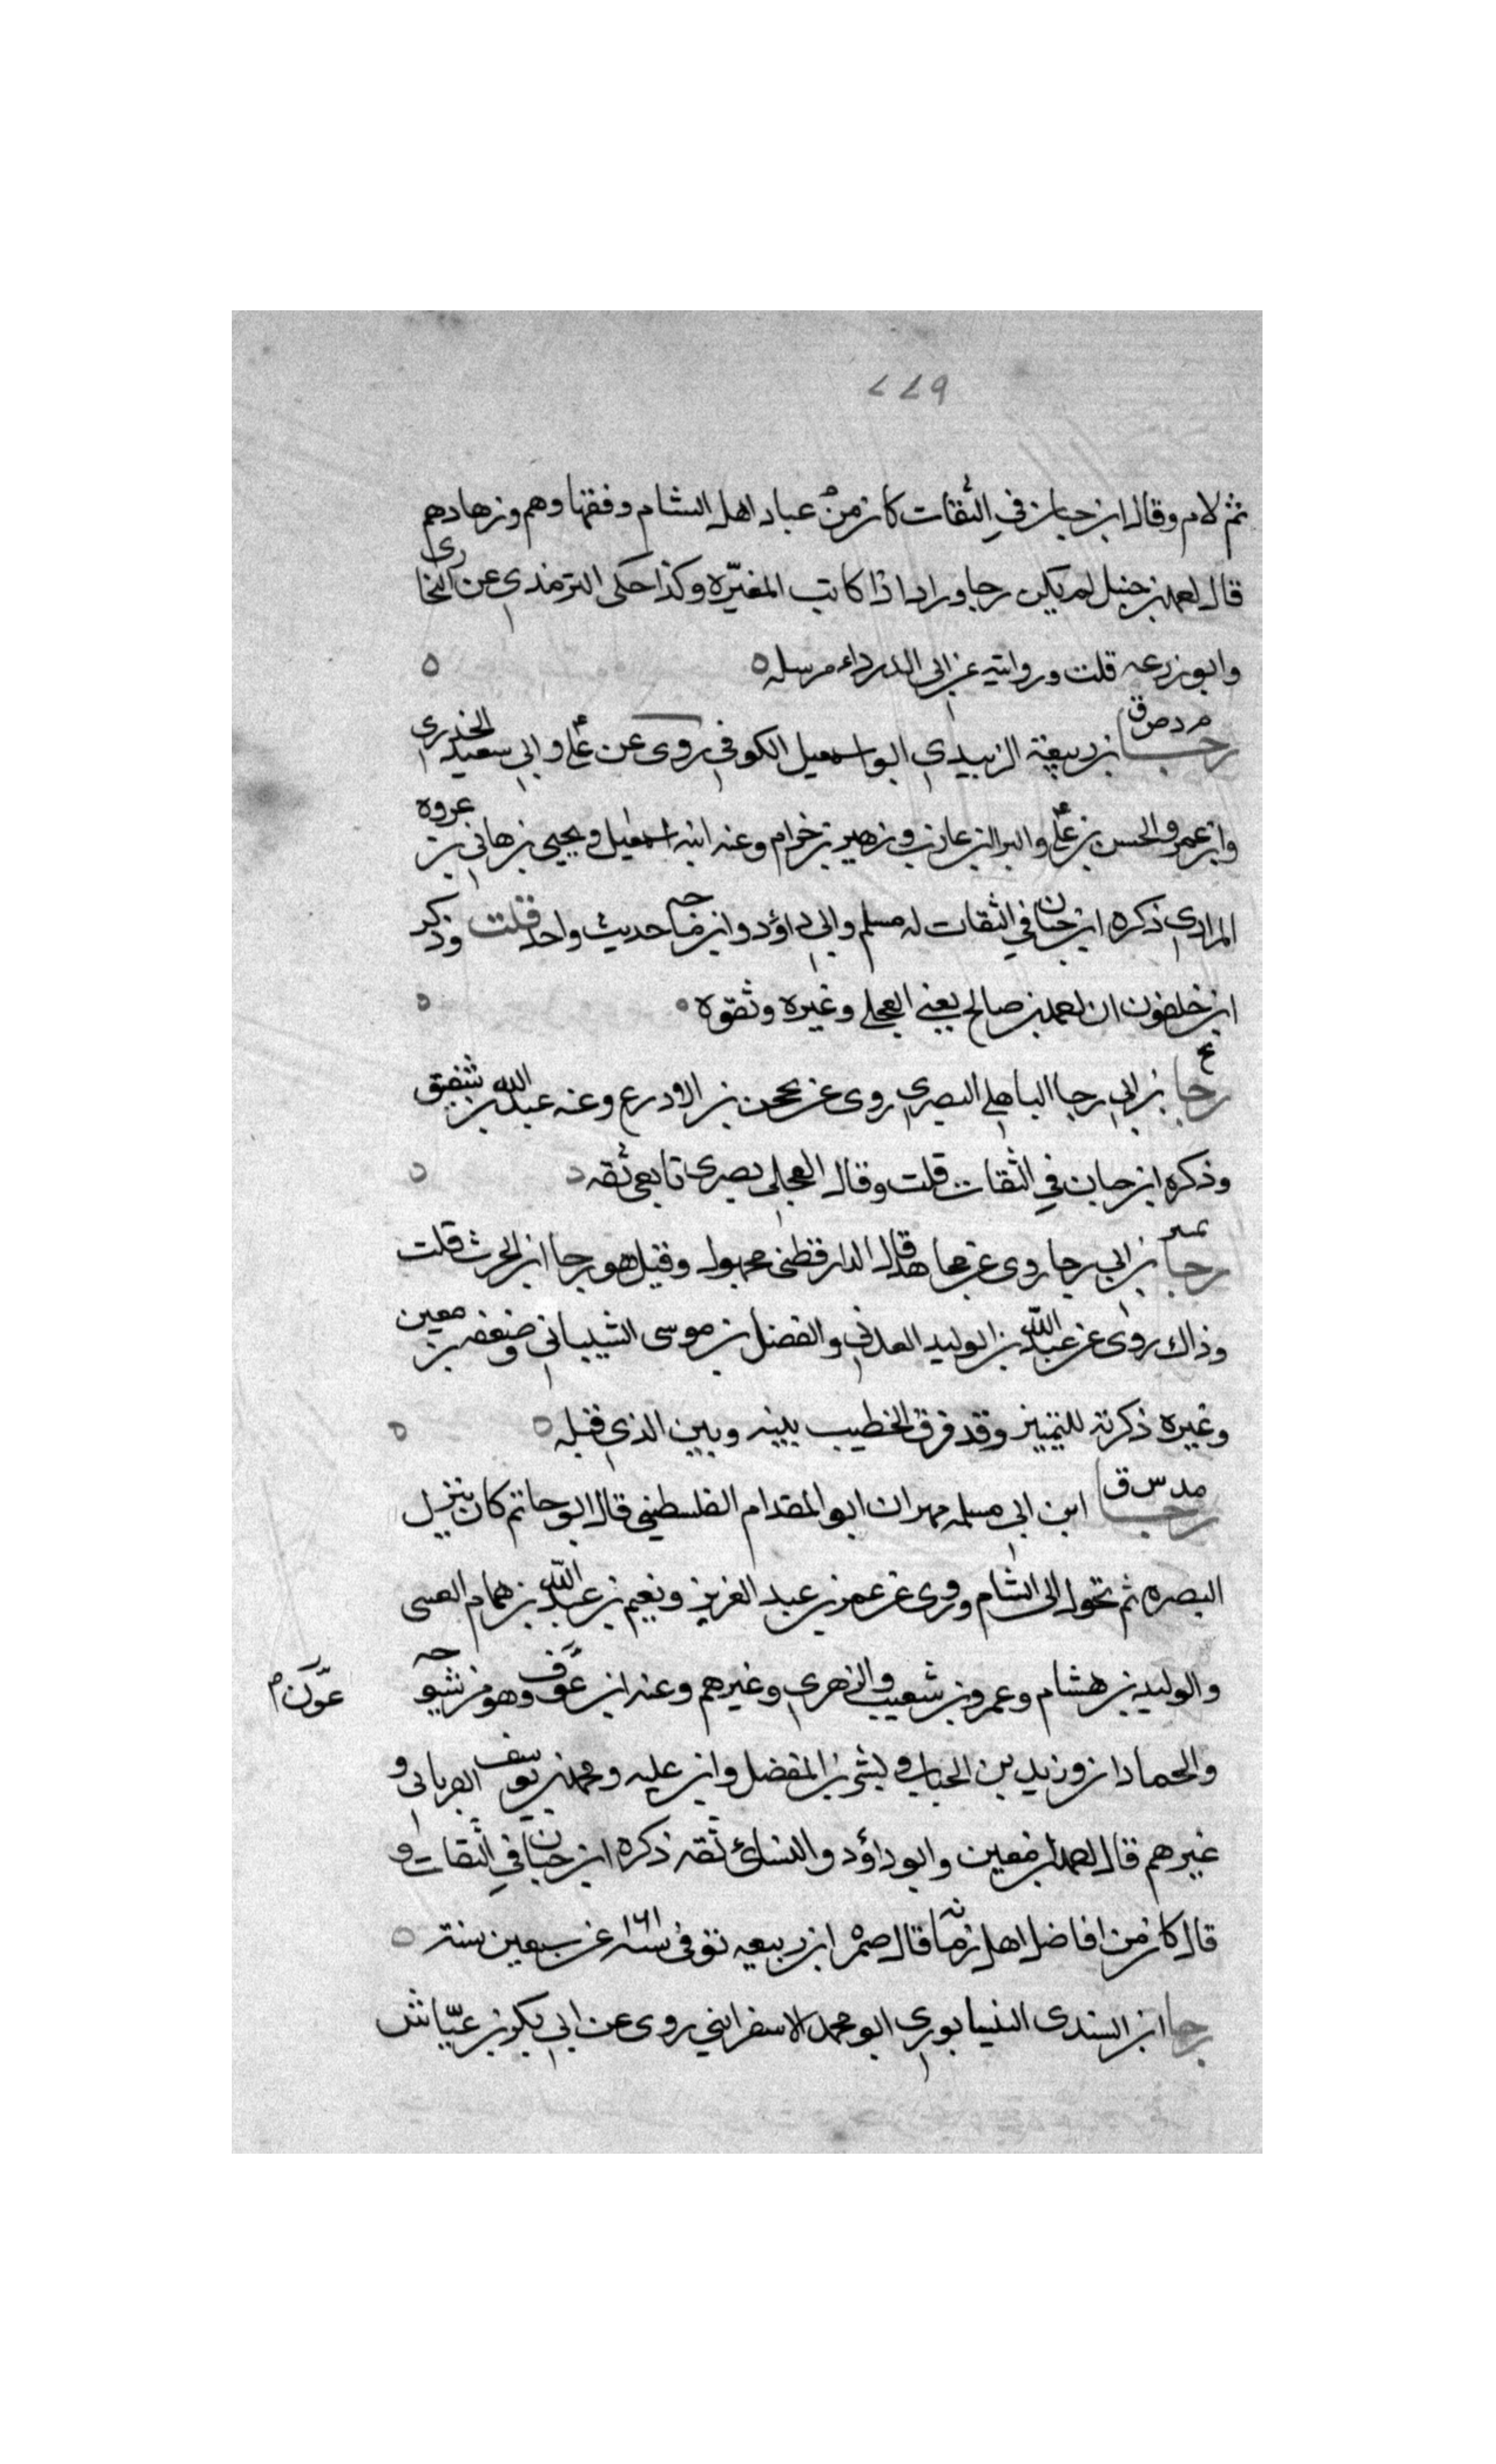 ٦٧٧
ثم لام وقال ابن حبان في الثقات كان من عباد اهل الشام وفقهاوهم وزهادهم
قال احمد بن حنبل لم يلق رجا ورادا كاتب المغيره وكذا حكى الترمذي عن البخاري
وابو زرعه قلت وروايته عن ابي الدرداء مرسله
م د ص ق
رجا بن ربيعة الزبيدي ابو اسمعيل الكوفي روى عن علي وابي سعيد الخدري
وابن عمر والحسن بن علي والبرا بن عازب وزهير بن خرام وعنه ابنه اسمعيل ويحيى بن هاني بن عروه
المرادي ذكره ابن حبان في الثقات له مسلم وابي داؤد وابن ماجه حديث واحد قلت وذكر
ابن خلفون ان احمد بن صالح يعني العجلي وغيره وثقوه
ع
رجا بن ابي رجا الباهلي البصري روى عن محجن بن الادرع وعنه عبد الله بن شقيق
وذكره ابن حبان في الثقات قلت وقال العجلي بصري تابعي ثقه
تمييز
رجا بن ابي رجا روى عن مجاهد قال الدارقطني مجهول وقيل هو رجا ابن الحرث قلت
وذاك روى عن عبد الله بن الوليد العدني والفضل بن موسى الشيباني وضعفه بن معين
وغيره ذكرته للتمييز وقد فرق الخطيب بينه وبين الذي قبله
مد س ق
رجا ابن ابي مسلمه مهران ابو المقدام الفلسطيني قال ابو حاتم كان ينزل
البصره ثم تحول الى الشام وروى عن عمر بن عبد العزيز ونعيم بن عبد الله بن همام العسى
والوليد بن هشام وعمرو بن شعيب والزهري وغيرهم وعنه ابن عوف وهو من شيوخه
عون
والحمادان وزيد بن الحباب وبشر بن المفضل وابن عليه ومحمد بن يوسف الفريابي و
غيرهم قال احمد وابن معين وابو داؤد والنسائ ثقه ذكره ابن حبان في الثقات و
قال كان من افاضل اهل زمانه قال ضمره ابن ربيعه توفي سنه ١٦١ عن سبعين سنة
رجا ابن السندي النيسابوري ابو محمد الاسفرايني روى عن ابي بكر بن عياش